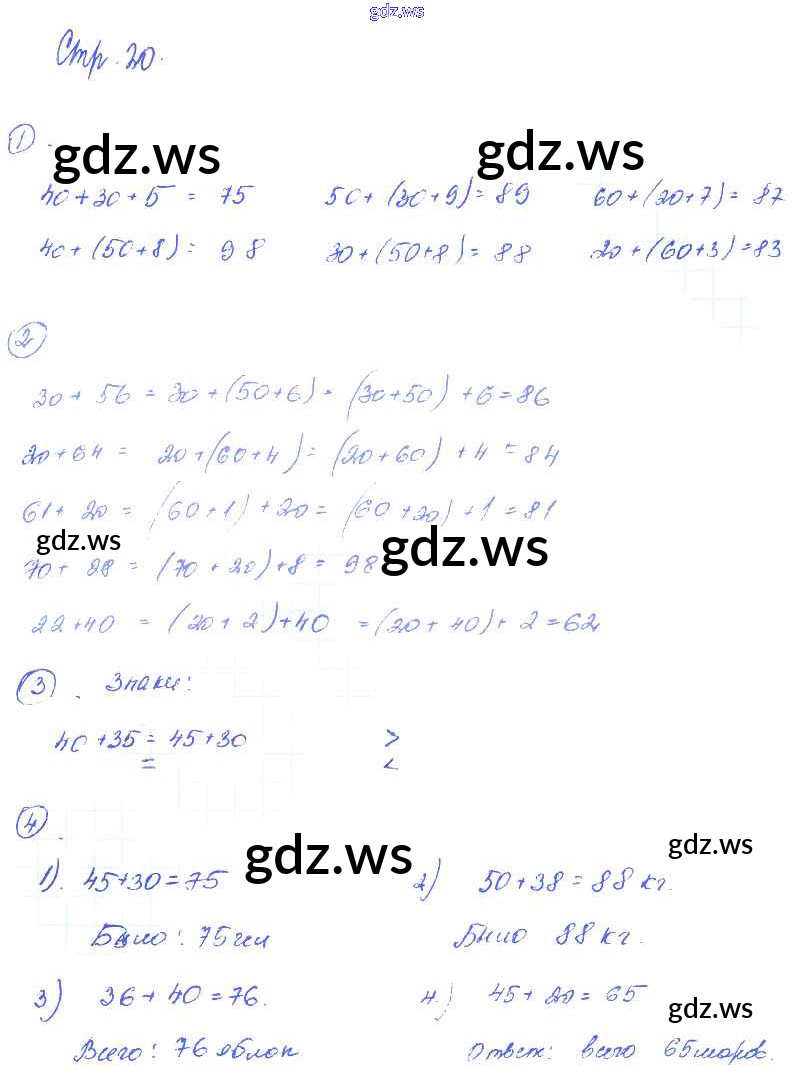 gdz.ws
Стр. 20.
1.
gdz.ws gdz.ws
40+30+5 = 75 50+(30+9)=89 60+(20+7)=87
40+(50+8)=98 30+(50+8)=88 20+(60+3)=83
2
30+56=30+(50+6)=(30+50)+6=86
20+64= 20+(60+4)=(20+60)+4=84
61+20=(60+1)+20=(60+20)+1=81
gdz.ws gdz.ws
70+28=(70+20)+8=98
22+40=(20+2)+40=(20+40)+2=62
3. Знаки:
40+35=45+30 >
= <
4.
gdz.ws gdz.ws
1). 45+30=75 2) 50+38=88 кг.
Было: 75 Было 88 кг.
3) 36+40=76. 4.) 45+20=65
gdz.ws
Всего: 76 яблок Ответ: всего 65 шаров.